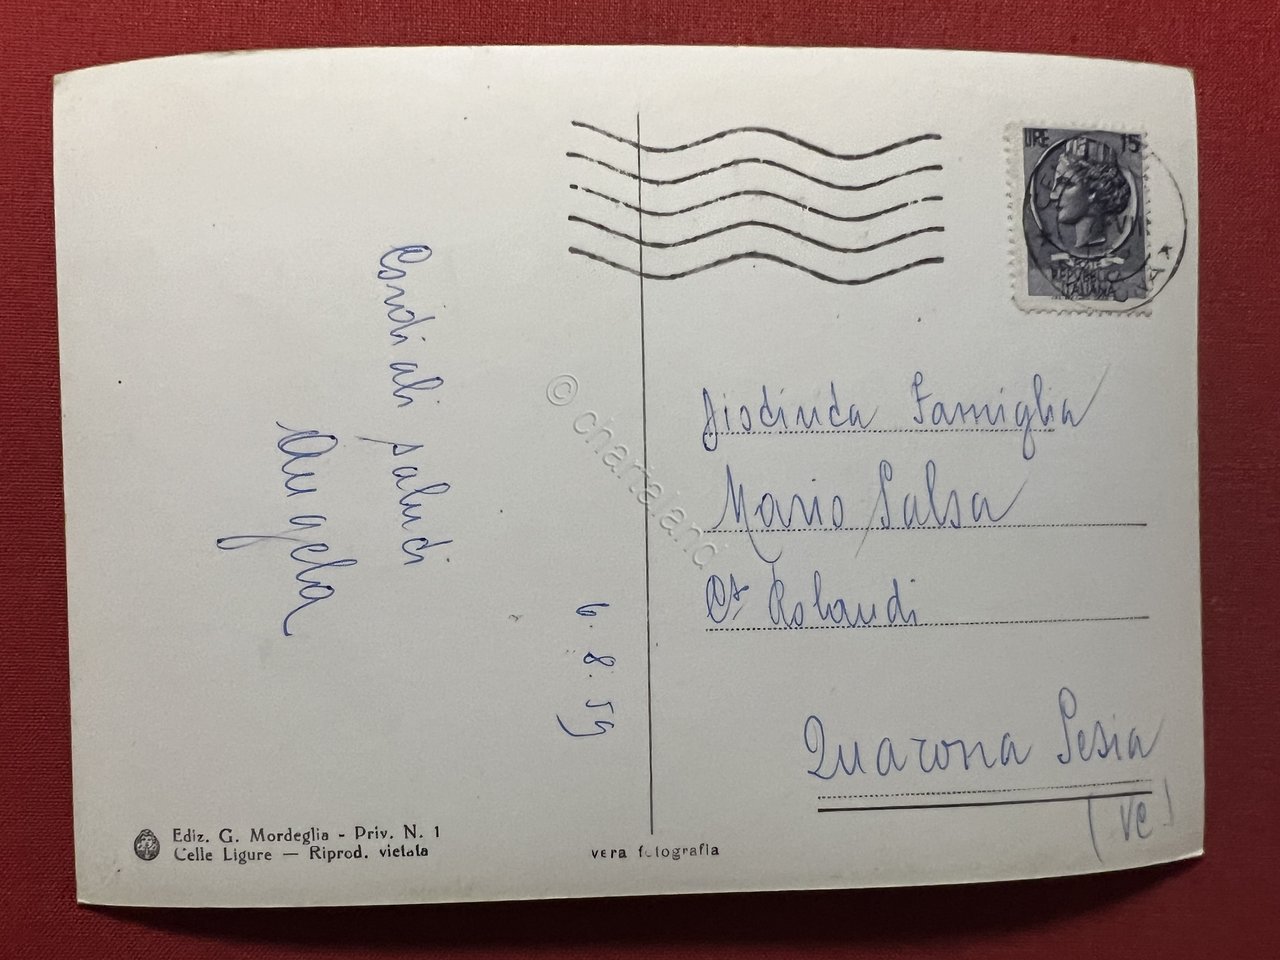 Cordiali saluti
Angela
6.8.59
Ediz. G. Mordeglia - Priv. N. 1
Celle Ligure — Riprod. vietata
vera fotografia
© chartaland
LIRE 15
POSTE
REPVBBLICA
ITALIANA
Distinta Famiglia
Mario Salsa
Rolandi
Quarona Sesia
(VC)